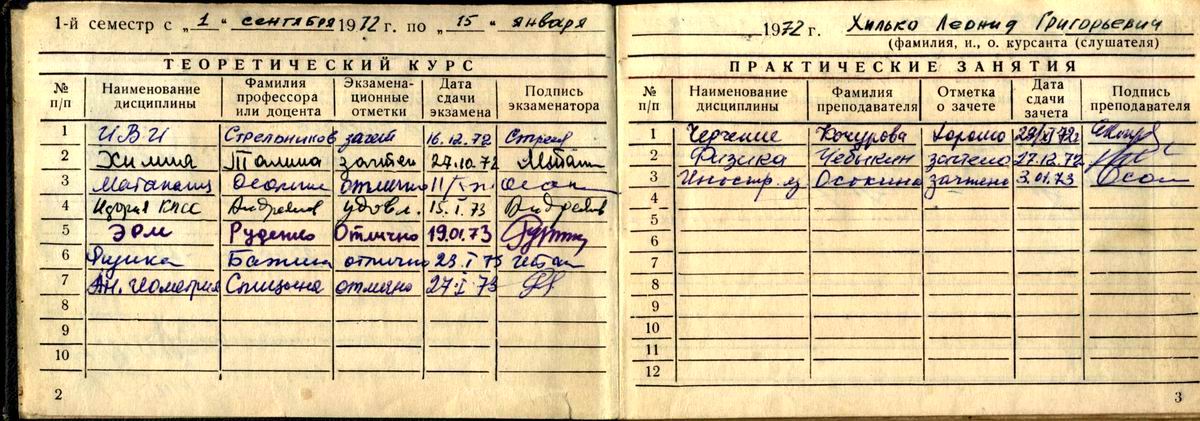 1-й семестр с „1" сентября 1972 г. по „15" января
ТЕОРЕТИЧЕСКИЙ КУРС
№ п/п Наименование дисциплины Фамилия профессора или доцента Экзаменационные отметки Дата сдачи экзамена Подпись экзаменатора
1 ИВИ Стрельников зачет 16.12.72
2 Химия Талина зачтен 27.10.72
3 Матанализ отлично
4 История КПСС Андреев удовл. 15.I.73 Андреев
5 Руденко Отлично 19.01.73
6 Физика Бажина отлично 23.I 73
7 Ан. геометрия Спицына отлично 27.I 73
8
9
10
2
1972 г. Хилько Леонид Григорьевич
(фамилия, и., о. курсанта (слушателя)
ПРАКТИЧЕСКИЕ ЗАНЯТИЯ
№ п/п Наименование дисциплины Фамилия преподавателя Отметка о зачете Дата сдачи зачета Подпись преподавателя
1 Черчение Кочурова Хорошо
2 Физика Чебыкин зачтено 27.12.72
3 Иностр. яз Осокина зачтено 3.01.73
4
5
6
7
8
9
10
11
12
3